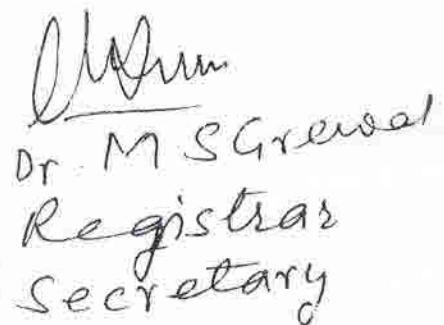 Dr. M S Grewal
Registrar
Secretary